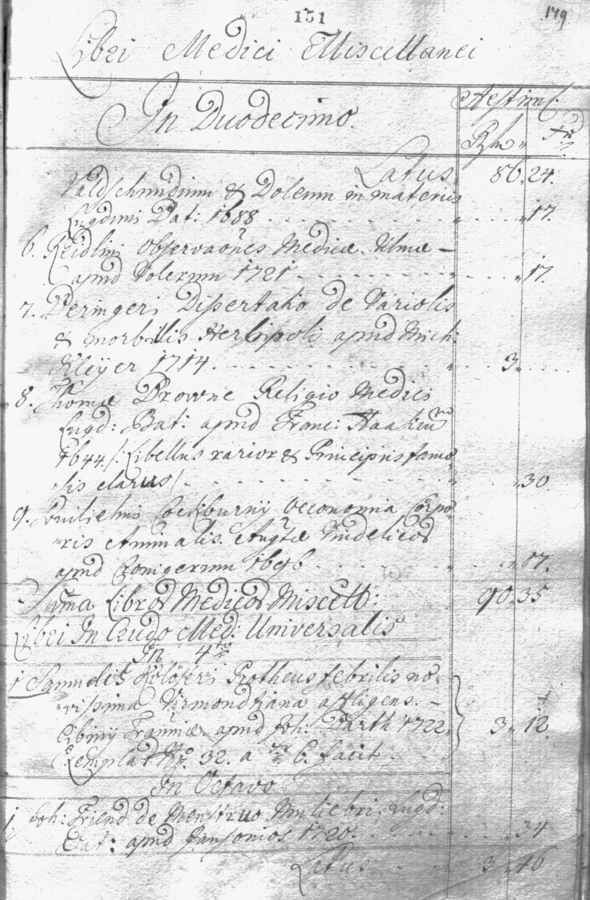 131
179
Libri Medici Miscellanei
In Duodecimo. Aestim:
Rfn xr
Latus 86. 24.
Waldschmidium & Doleum in materia
Lugduni Bat: 1688 17.
6. Reidlini Observationes Medicæ. Ulmæ –
apud 1721 17.
7. Beringeri Dissertatio de Variolis
& morbillis Herbipoli apud Mich:
Kleyer 1714. 3.
8. Thomæ Browne Religio Medici
Lugd: Bat: apud Franc: Haakium
1644 /: Libellus rarior & Principiis famo
sis clarus / 30
9. Guilielmi Cockburny Oeconomia Corpo
ris Animalis. Augtæ Vindelicor
apud Kronigerum 1696 07.
Suma Libror Medicor Miscell: 90. 35
Libri In Crudo Med: Universalis
In 4to
1 Samuelis Köleseri Protheus febrilis no
vissima affligens. –
apud Joh: Barth 1722. 3. 12.
Exemplar No. 32. a xr 6. facit
In Octavo
1. Joh: Friend de Menstruo Muliebri. Lugd:
Bat: apud Jansonios 1720. 34
Latus 3. 46